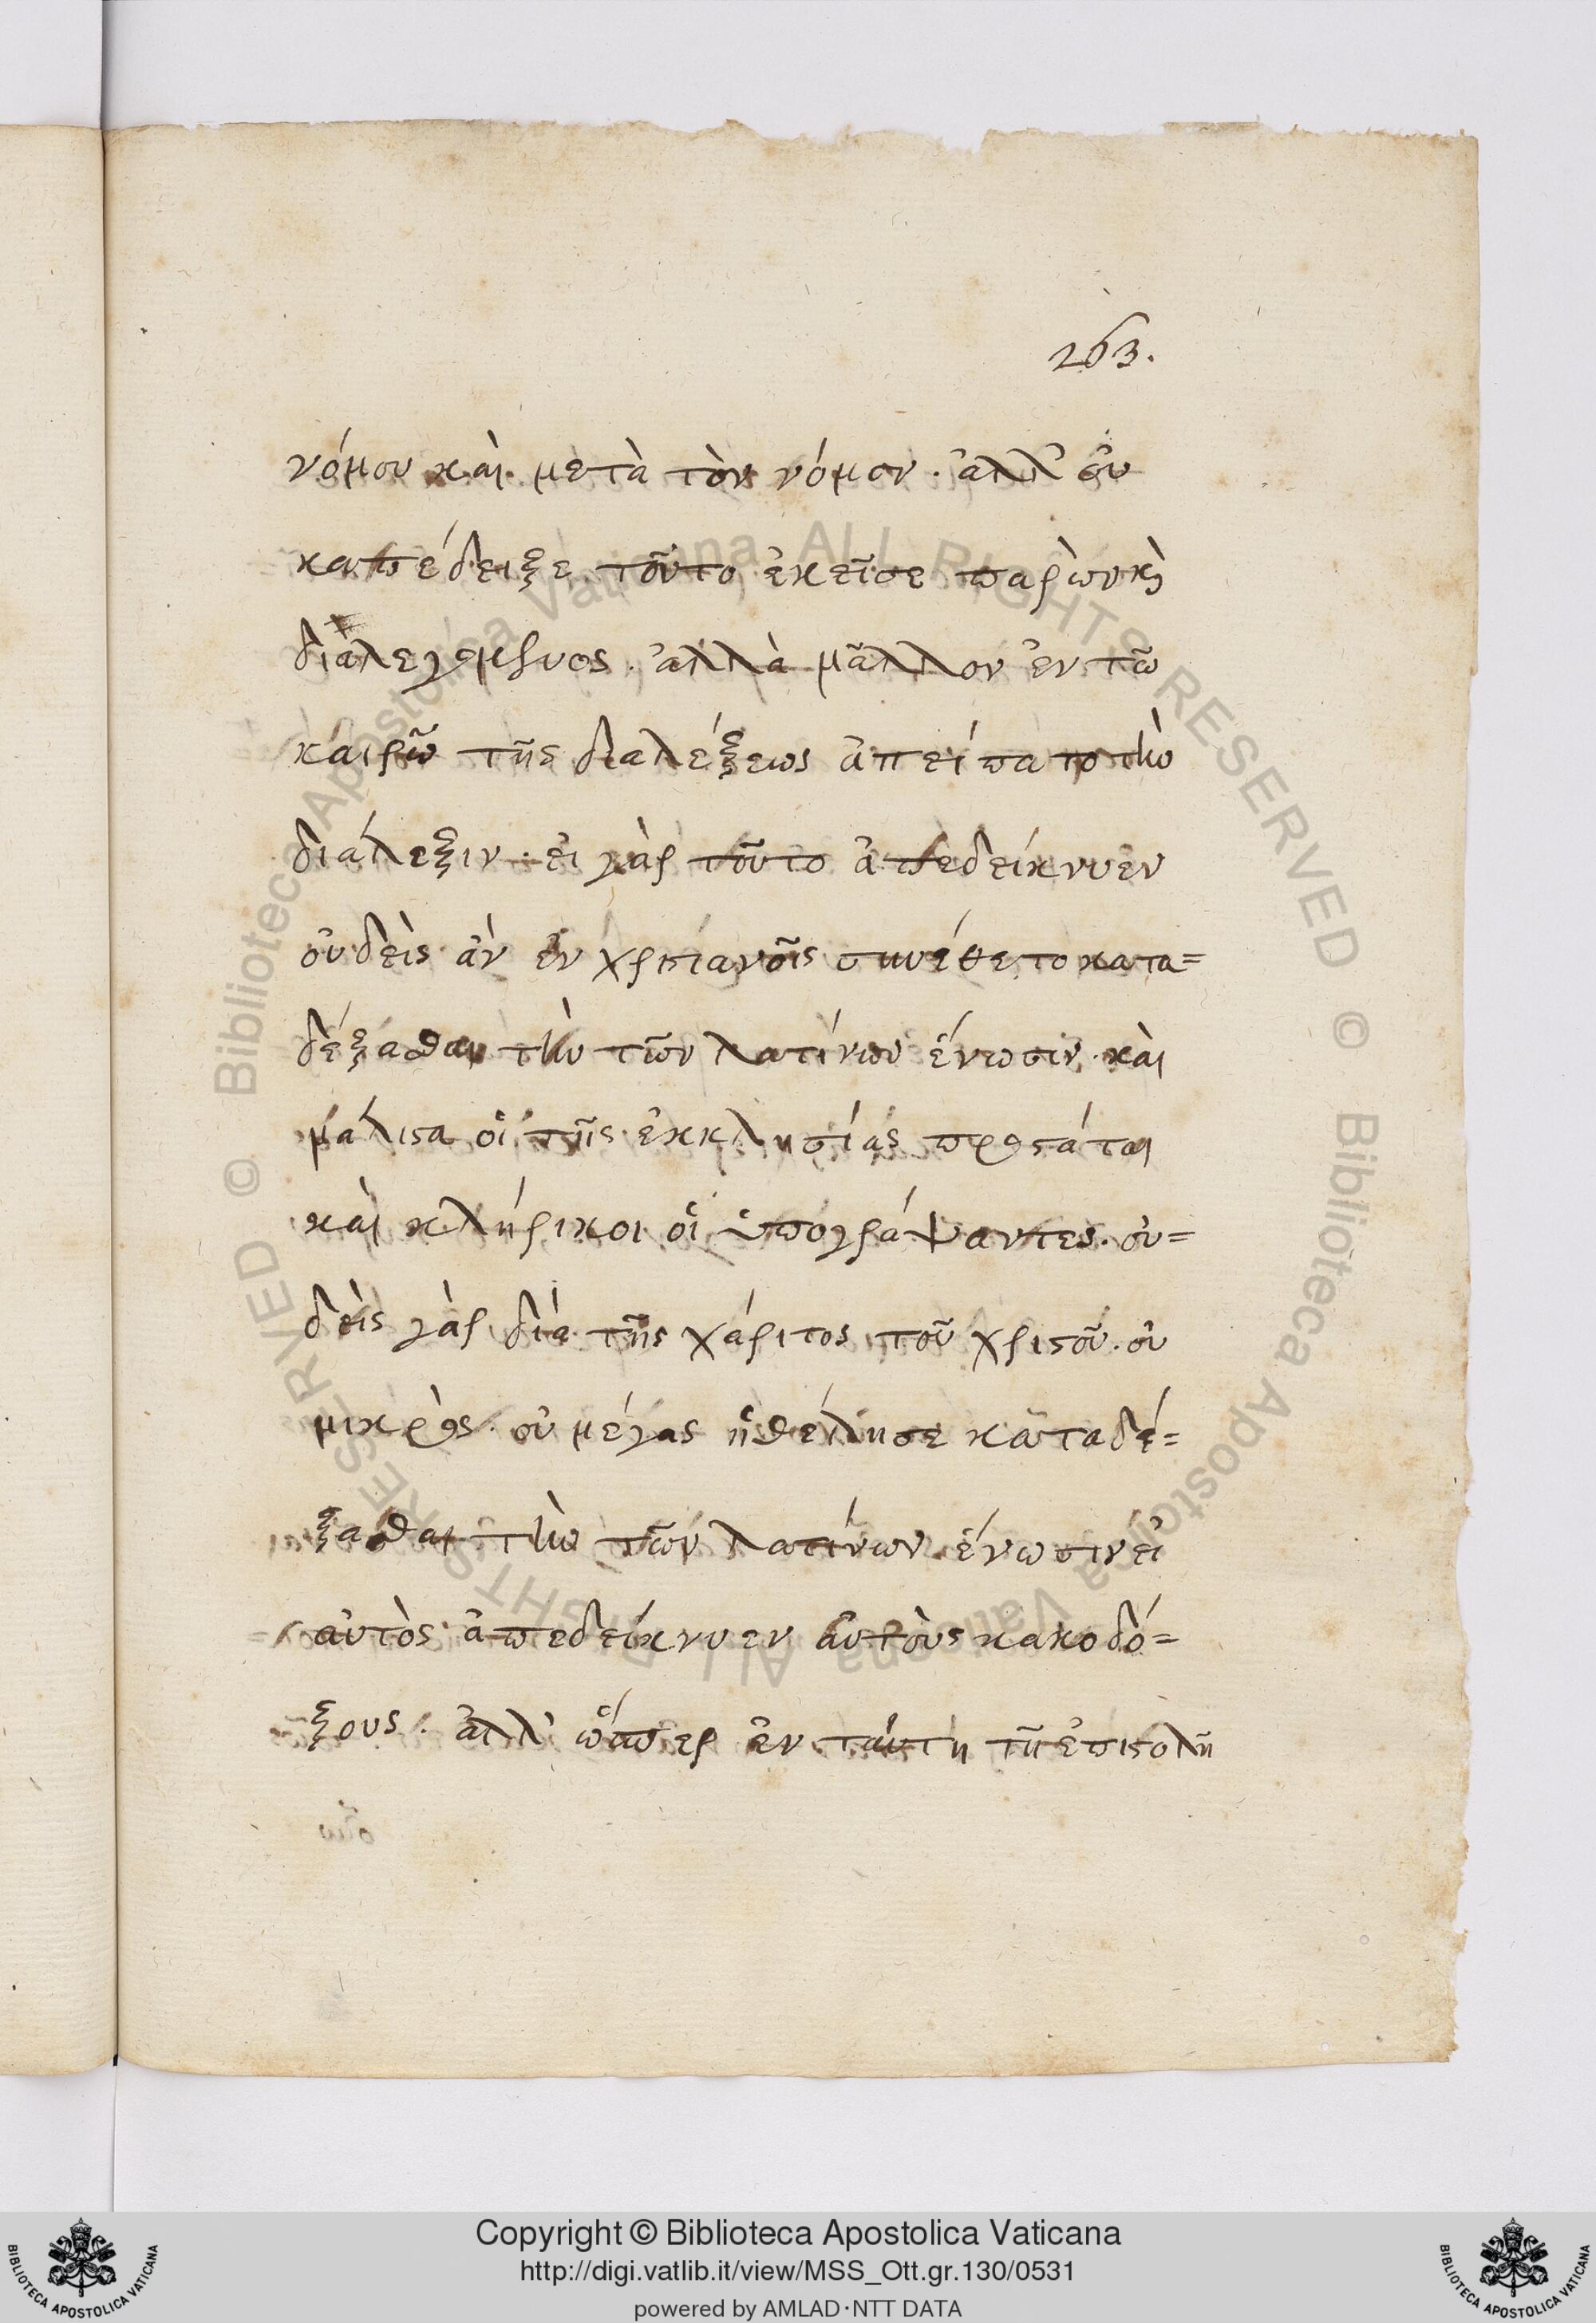 263.
νόμου καὶ μετὰ τὸν νόμον. ἀλλ' οὐ
κατέδειξε τοῦτο ἐκεῖσε παρὼν κὶ
διαλεγόμενος. ἀλλὰ μᾶλλον ἐν τῶ
καιρῶ τῆς διαλέξεως ἀπείπατο τὴν
διάλεξιν. εἰ γὰρ τοῦτο ἀπεδείκνυεν
οὐδεὶς ἀν ἐν χριστιανοῖς συνέθετο κατα=
δέξασθαι τὴν τῶν λατίνων ἕνωσιν. καὶ
μάλιστα οἱ τῆς ἐκκλησίας προστάται
καὶ κλήρικοι οἱ ὑπογράψαντες. οὐ=
δεὶς γὰρ διὰ τῆς χάριτος τοῦ χριστοῦ. οὐ
μικρὸς. οὐ μέγας ἠθέλησε καταδέ=
ξασθαι τὴν τῶν λατίνων ἕνωσιν εἰ
αὐτὸς ἀπεδείκνυεν αὐτοὺς κακοδό=
ξους. ἀλλ' ὥσπερ ἐν ταύτη τῆ ἐπιστολῆ
Copyright © Biblioteca Apostolica Vaticana
http://digi.vatlib.it/view/MSS_Ott.gr.130/0531
powered by AMLAD·NTT DATA
BIBLIOTECA APOSTOLICA VATICANA
BIBLIOTECA APOSTOLICA VATICANA
© Biblioteca Apostolica Vaticana ALL RIGHTS RESERVED
© Biblioteca Apostolica Vaticana ALL RIGHTS RESERVED